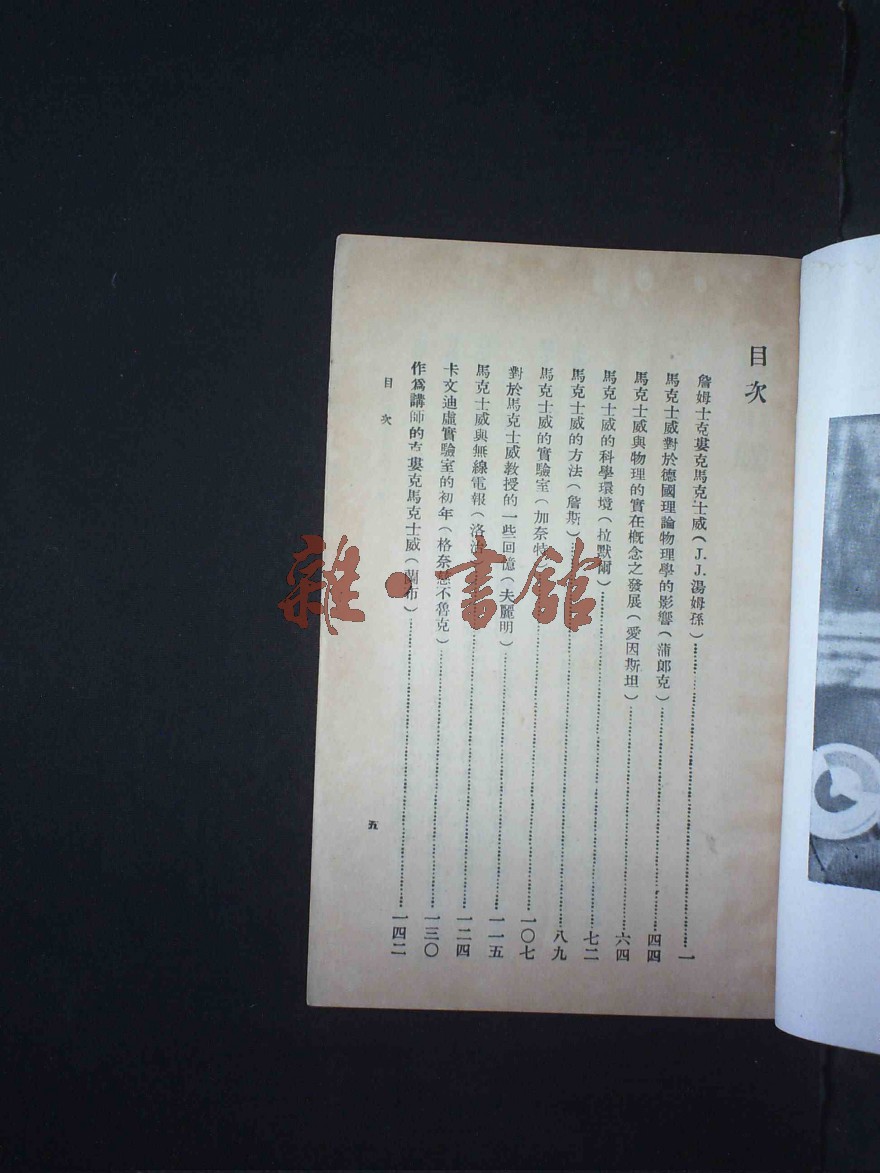 目次
詹姆士克婁克馬克士威(J.J.湯姆孫)……一
馬克士威對於德國理論物理學的影響(蒲郎克)……四四
馬克士威與物理的實在概念之發展(愛因斯坦)……六四
馬克士威的科學環境(拉默爾)……七二
馬克士威的方法(詹斯)……八九
馬克士威的實驗室(加奈特)……一〇七
對於馬克士威教授的一些回憶(夫麗明)……一一五
馬克士威與無線電報(洛治)……一二四
卡文迪虛實驗室的初年(格奈慈不魯克)……一三〇
作爲講師的克婁克馬克士威(蘭布)……一四二
目次
五
雜·書館